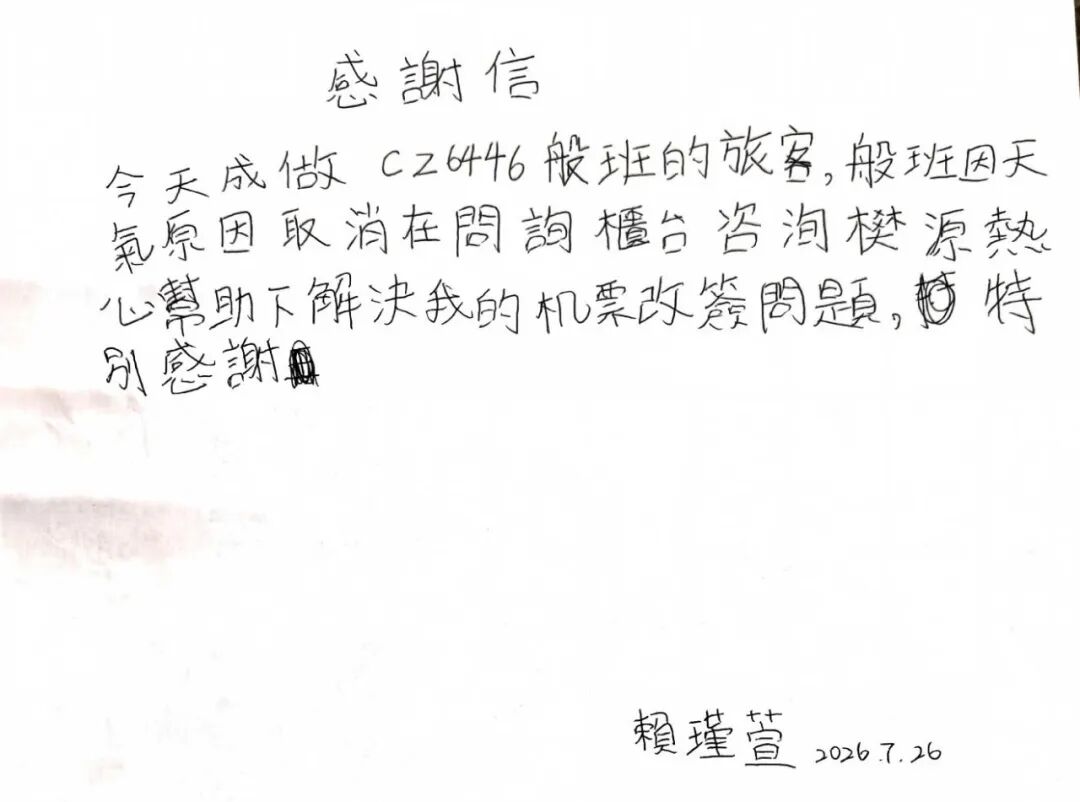 感謝信
今天成做 CZ6446 般班的旅客,般班因天
氣原因取消在問詢櫃台咨洵樊源熱
心幫助下解決我的机票改簽問題,特
別感謝
賴瑾萱 2026.7.26